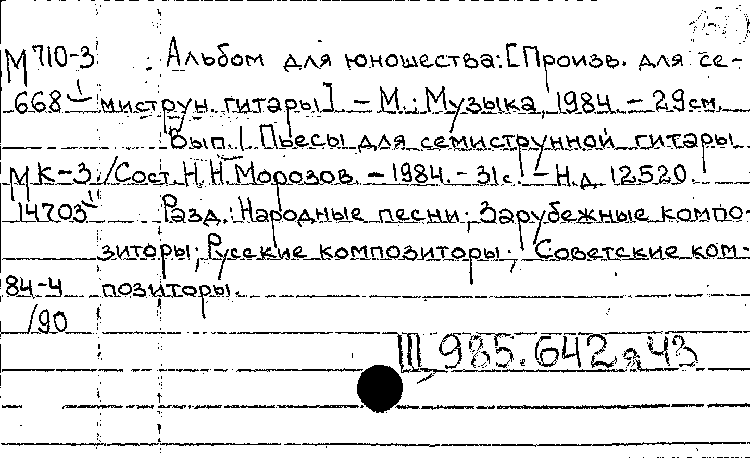 М 710-3 Альбом для юношества: [Произв. для се-
668 миструн. гитары]. – М.: Музыка, 1984. – 29 см.
Вып. 1. Пьесы для семиструнной гитары
М К-3 /Сост. Н.Н. Морозов. – 1984. – 31 с. – Н.д. 12520.
14703 Разд.: Народные песни; Зарубежные компо-
зиторы; Русские композиторы; Советские ком-
84-4 позиторы.
/90
III 985.642я43